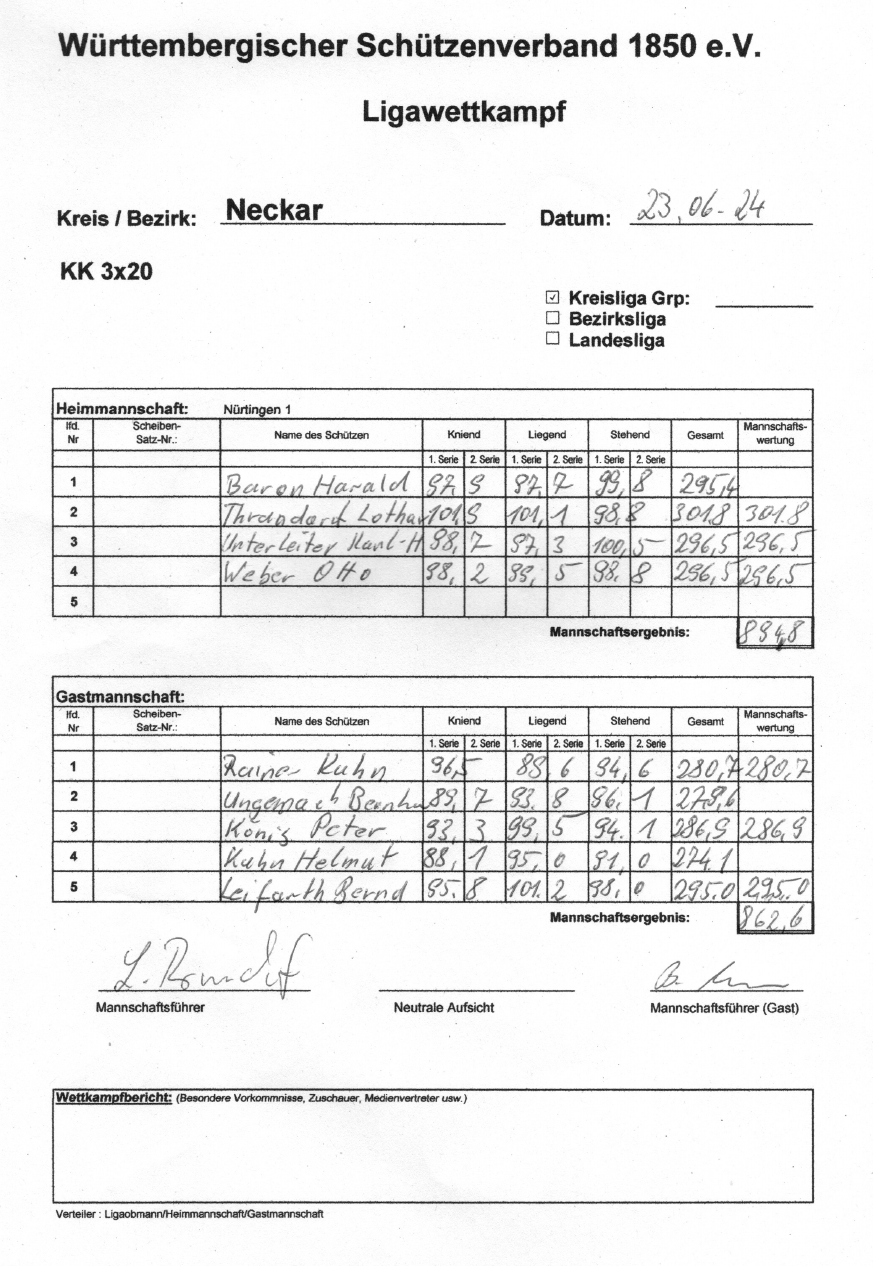 Württembergischer Schützenverband 1850 e.V.
Ligawettkampf
Kreis / Bezirk: Neckar Datum: 23,06-24
KK 3x20
☑ Kreisliga Grp:
☐ Bezirksliga
☐ Landesliga
Heimmannschaft: Nürtingen 1
lfd. Nr Scheiben-Satz-Nr.: Name des Schützen Kniend Liegend Stehend Gesamt Mannschafts-wertung
1. Serie 2. Serie 1. Serie 2. Serie 1. Serie 2. Serie
1 Baron Harald 97, 9 97, 7 99, 8 295,4
2 Lothar 101, 9 101, 1 98, 8 301.8 301.8
3 Unterleiter Karl-H 98, 7 97, 3 100, 5 296,5 296,5
4 Weber Otto 98, 2 99, 5 98. 8 296,5 296,5
5
Mannschaftsergebnis: 894,8
Gastmannschaft:
lfd. Nr Scheiben-Satz-Nr.: Name des Schützen Kniend Liegend Stehend Gesamt Mannschafts-wertung
1. Serie 2. Serie 1. Serie 2. Serie 1. Serie 2. Serie
1 Rainer Kuhn 96,5 89, 6 94, 6 280,7 280,7
2 Ungemach Bernha 89, 7 93. 8 96. 1 279,6
3 König Peter 93, 3 99, 5 94. 1 286,9 286,9
4 Kuhn Helmut 88, 1 95, 0 91, 0 274.1
5 Leifarth Bernd 95. 8 101. 2 98, 0 295.0 295.0
Mannschaftsergebnis: 862,6
Mannschaftsführer Neutrale Aufsicht Mannschaftsführer (Gast)
Wettkampfbericht: (Besondere Vorkommnisse, Zuschauer, Medienvertreter usw.)
Verteiler : Ligaobmann/Heimmannschaft/Gastmannschaft